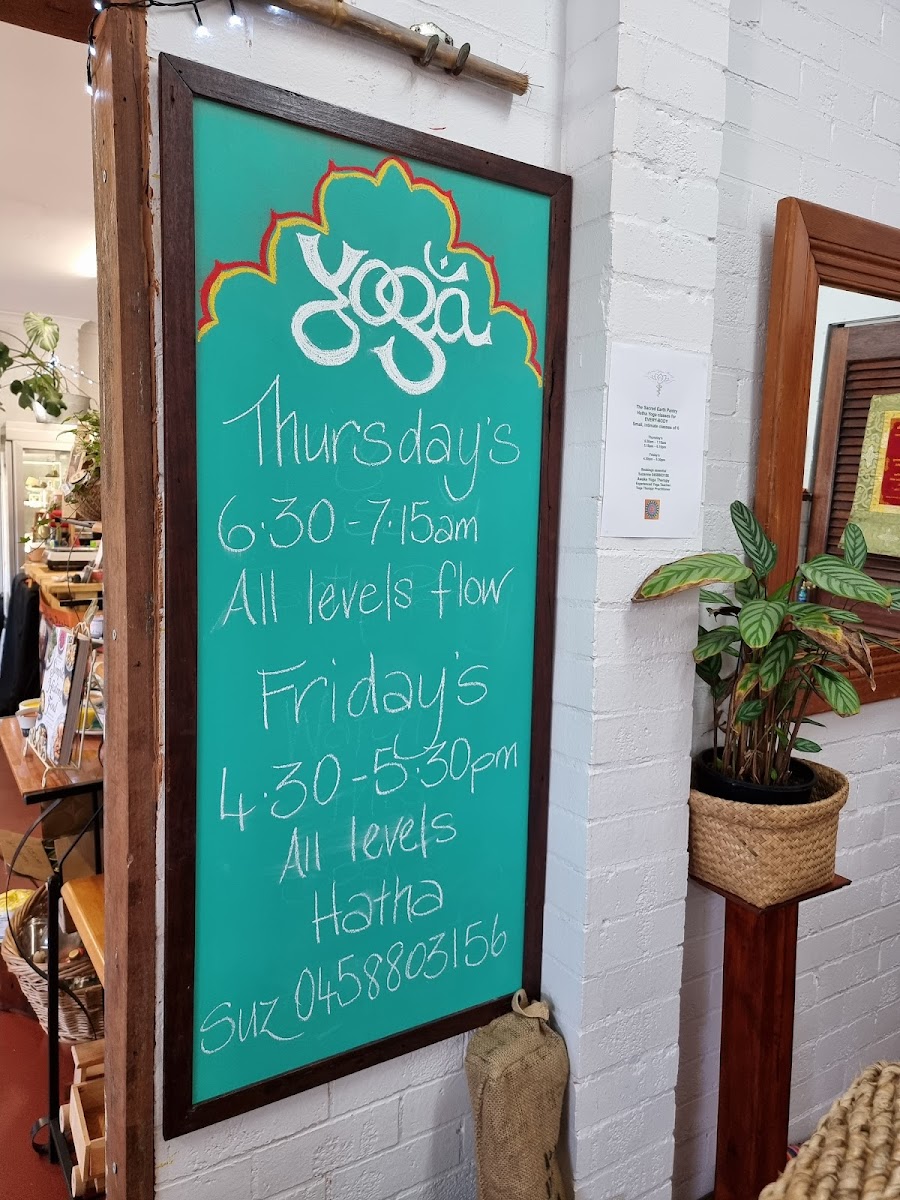 yoga
Thursday's
6.30 - 7.15am
All levels flow
Friday's
4.30 - 5.30pm
All levels
Hatha
Suz 0458803156
The Sacred Earth Pantry
Hatha Yoga classes for
EVERY-BODY
Small, intimate classes of 6
Thursday's
Friday's
4.30pm - 5.30pm
Bookings essential
Suzanne 0458803156